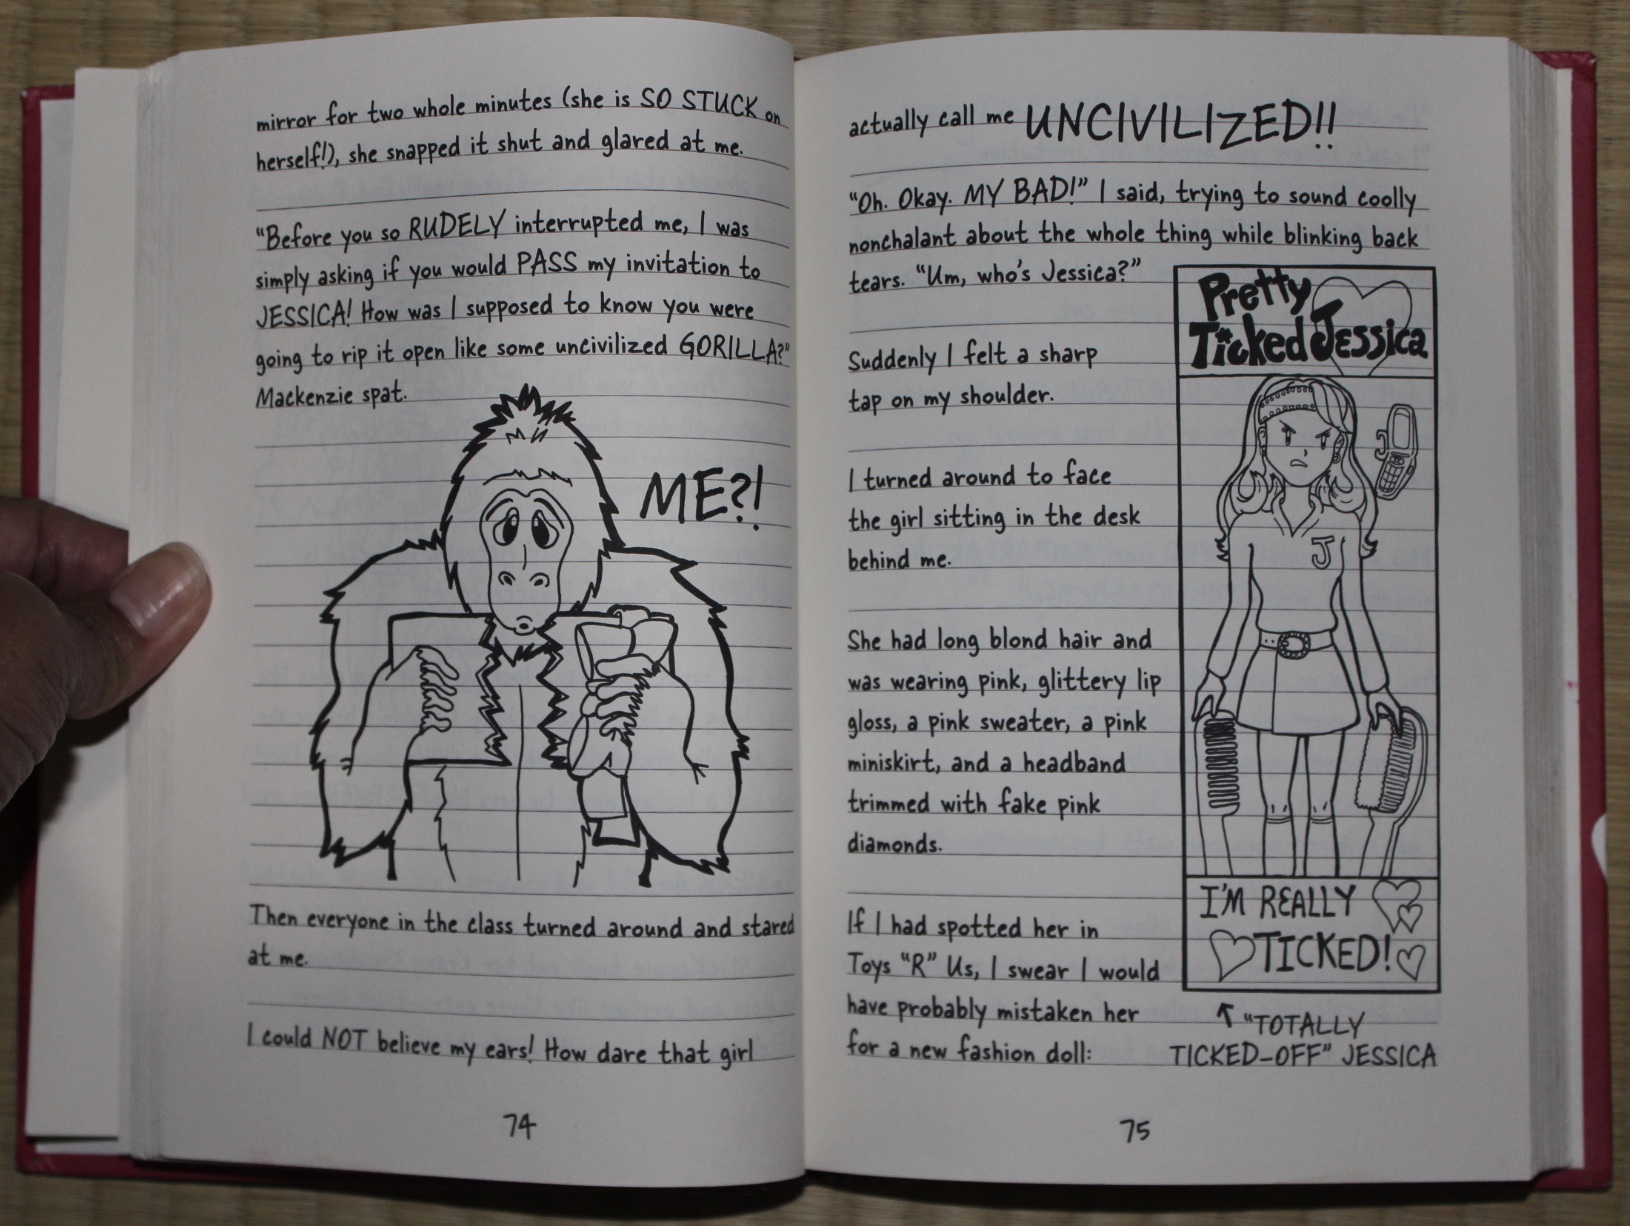 mirror for two whole minutes (she is SO STUCK on
herself!), she snapped it shut and glared at me.
"Before you so RUDELY interrupted me, I was
simply asking if you would PASS my invitation to
JESSICA! How was I supposed to know you were
going to rip it open like some uncivilized GORILLA?"
Mackenzie spat.
ME?!
Then everyone in the class turned around and stared
at me.
I could NOT believe my ears! How dare that girl
74
actually call me UNCIVILIZED!!
"Oh. Okay. MY BAD!" I said, trying to sound coolly
nonchalant about the whole thing while blinking back
tears. "Um, who's Jessica?"
Suddenly I felt a sharp
tap on my shoulder.
I turned around to face
the girl sitting in the desk
behind me.
She had long blond hair and
was wearing pink, glittery lip
gloss, a pink sweater, a pink
miniskirt, and a headband
trimmed with fake pink
diamonds.
If I had spotted her in
Toys "R" Us, I swear I would
have probably mistaken her
for a new fashion doll:
Pretty
Ticked Jessica
J
I'M REALLY
TICKED!
"TOTALLY
TICKED-OFF" JESSICA
75